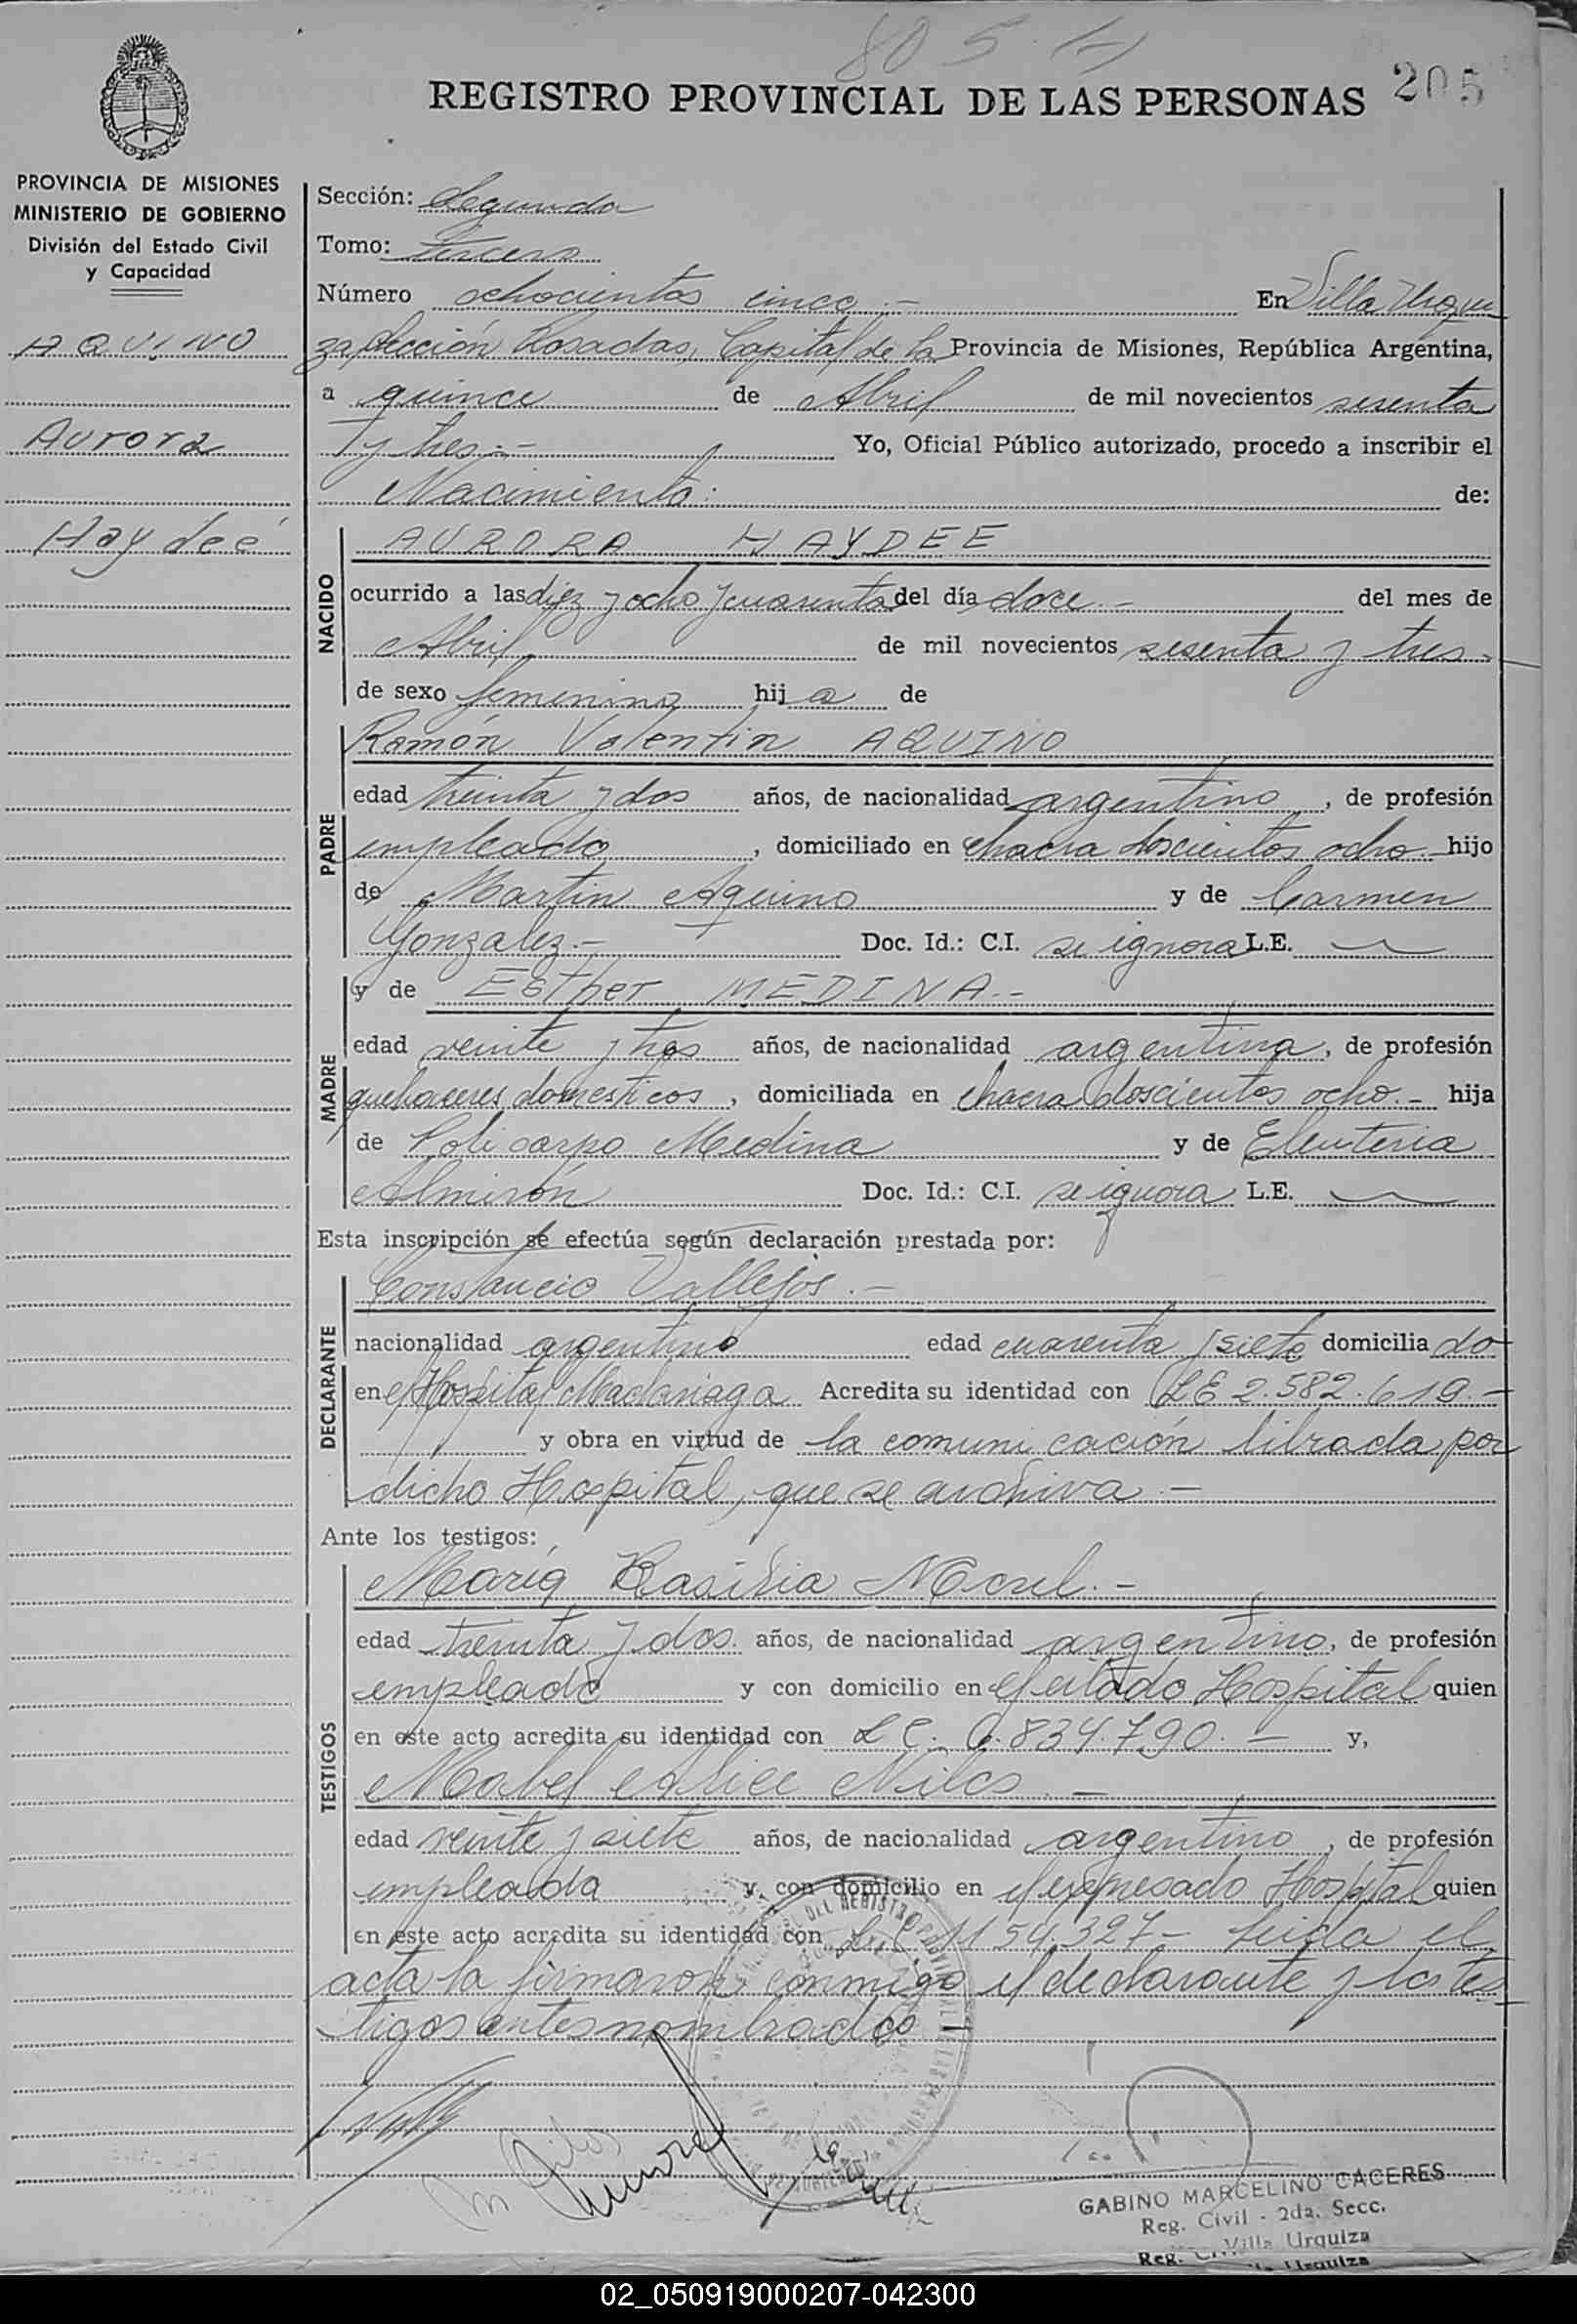 805
REGISTRO PROVINCIAL DE LAS PERSONAS 205
PROVINCIA DE MISIONES
MINISTERIO DE GOBIERNO
División del Estado Civil
y Capacidad
AQUINO
Aurora
Haydeé
Sección: Segunda
Tomo: Tercero
Número ochocientos cinco.- En Villa Urqui
za, Sección Rosadas, Capital de la Provincia de Misiones, República Argentina,
a quince de Abril de mil novecientos sesenta
y tres.- Yo, Oficial Público autorizado, procedo a inscribir el
Nacimiento: de:
NACIDO
AURORA HAYDEE
ocurrido a las diez y ocho y cuarenta del día doce.- del mes de
Abril de mil novecientos sesenta y tres.-
de sexo femenino hij a de
PADRE
Ramón Valentin AQUINO
edad treinta y dos años, de nacionalidad argentino, de profesión
empleado, domiciliado en chacra doscientos ocho.- hijo
de Martin Aquino y de Carmen
Gonzalez.- Doc. Id.: C.I. se ignora L.E.
MADRE
y de Esther MEDINA.-
edad veinte y tres años, de nacionalidad argentina, de profesión
quehaceres domesticos, domiciliada en chacra doscientos ocho.- hija
de Policarpo Medina y de Eleuteria
Almirón Doc. Id.: C.I. se ignora L.E.
Esta inscripción se efectúa según declaración prestada por:
DECLARANTE
Constancio Vallejos.-
nacionalidad argentino edad cuarenta y siete domicilia do
en el Hospital Madariaga Acredita su identidad con LE 2.582.619.-
y obra en virtud de la comunicación librada por
dicho Hospital, que se archiva.-
Ante los testigos:
TESTIGOS
María Basilia
edad treinta y dos. años, de nacionalidad argentino, de profesión
empleada y con domicilio en el citado Hospital quien
en este acto acredita su identidad con LC. 6.834.790.- y,
Mabel Alice
edad veinte y siete años, de nacionalidad argentino, de profesión
empleada y con domicilio en el expresado Hospital quien
en este acto acredita su identidad con 1154.327- Leida el
acta la firmaron conmigo el declarante y los tes
tigos antes nombrados
GABINO MARCELINO CACERES
Reg. Civil - 2da. Secc.
Villa Urquiza
Reg. Urquiza
02_050919000207-042300